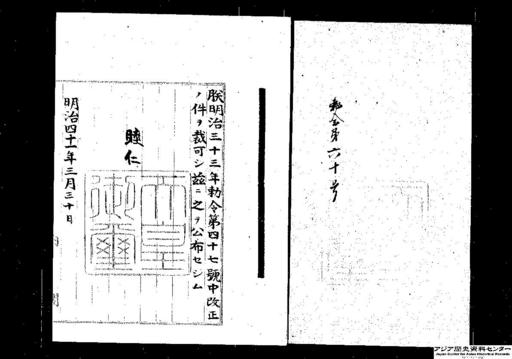 勅令第六十号
朕明治三十三年勅令第四十七號中改正
ノ件ヲ裁可シ茲ニ之ヲ公布セシム
睦仁
天皇御璽
明治四十一年三月三十日
アジア歴史資料センター
Japan Center for Asian Historical Records